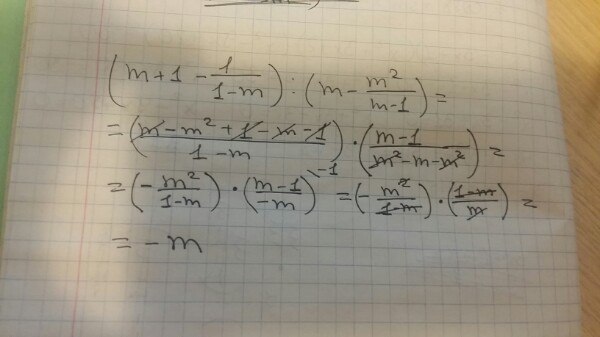 (m + 1 - 1/(1-m)) : (m - m²/(m-1)) =
= ((m - m² + 1 - m - 1)/(1-m)) · ((m-1)/(m² - m - m²)) =
= (-m²/(1-m)) · ((m-1)/(-m))⁻¹ = (-m²/(1-m)) · ((1-m)/m) =
= -m